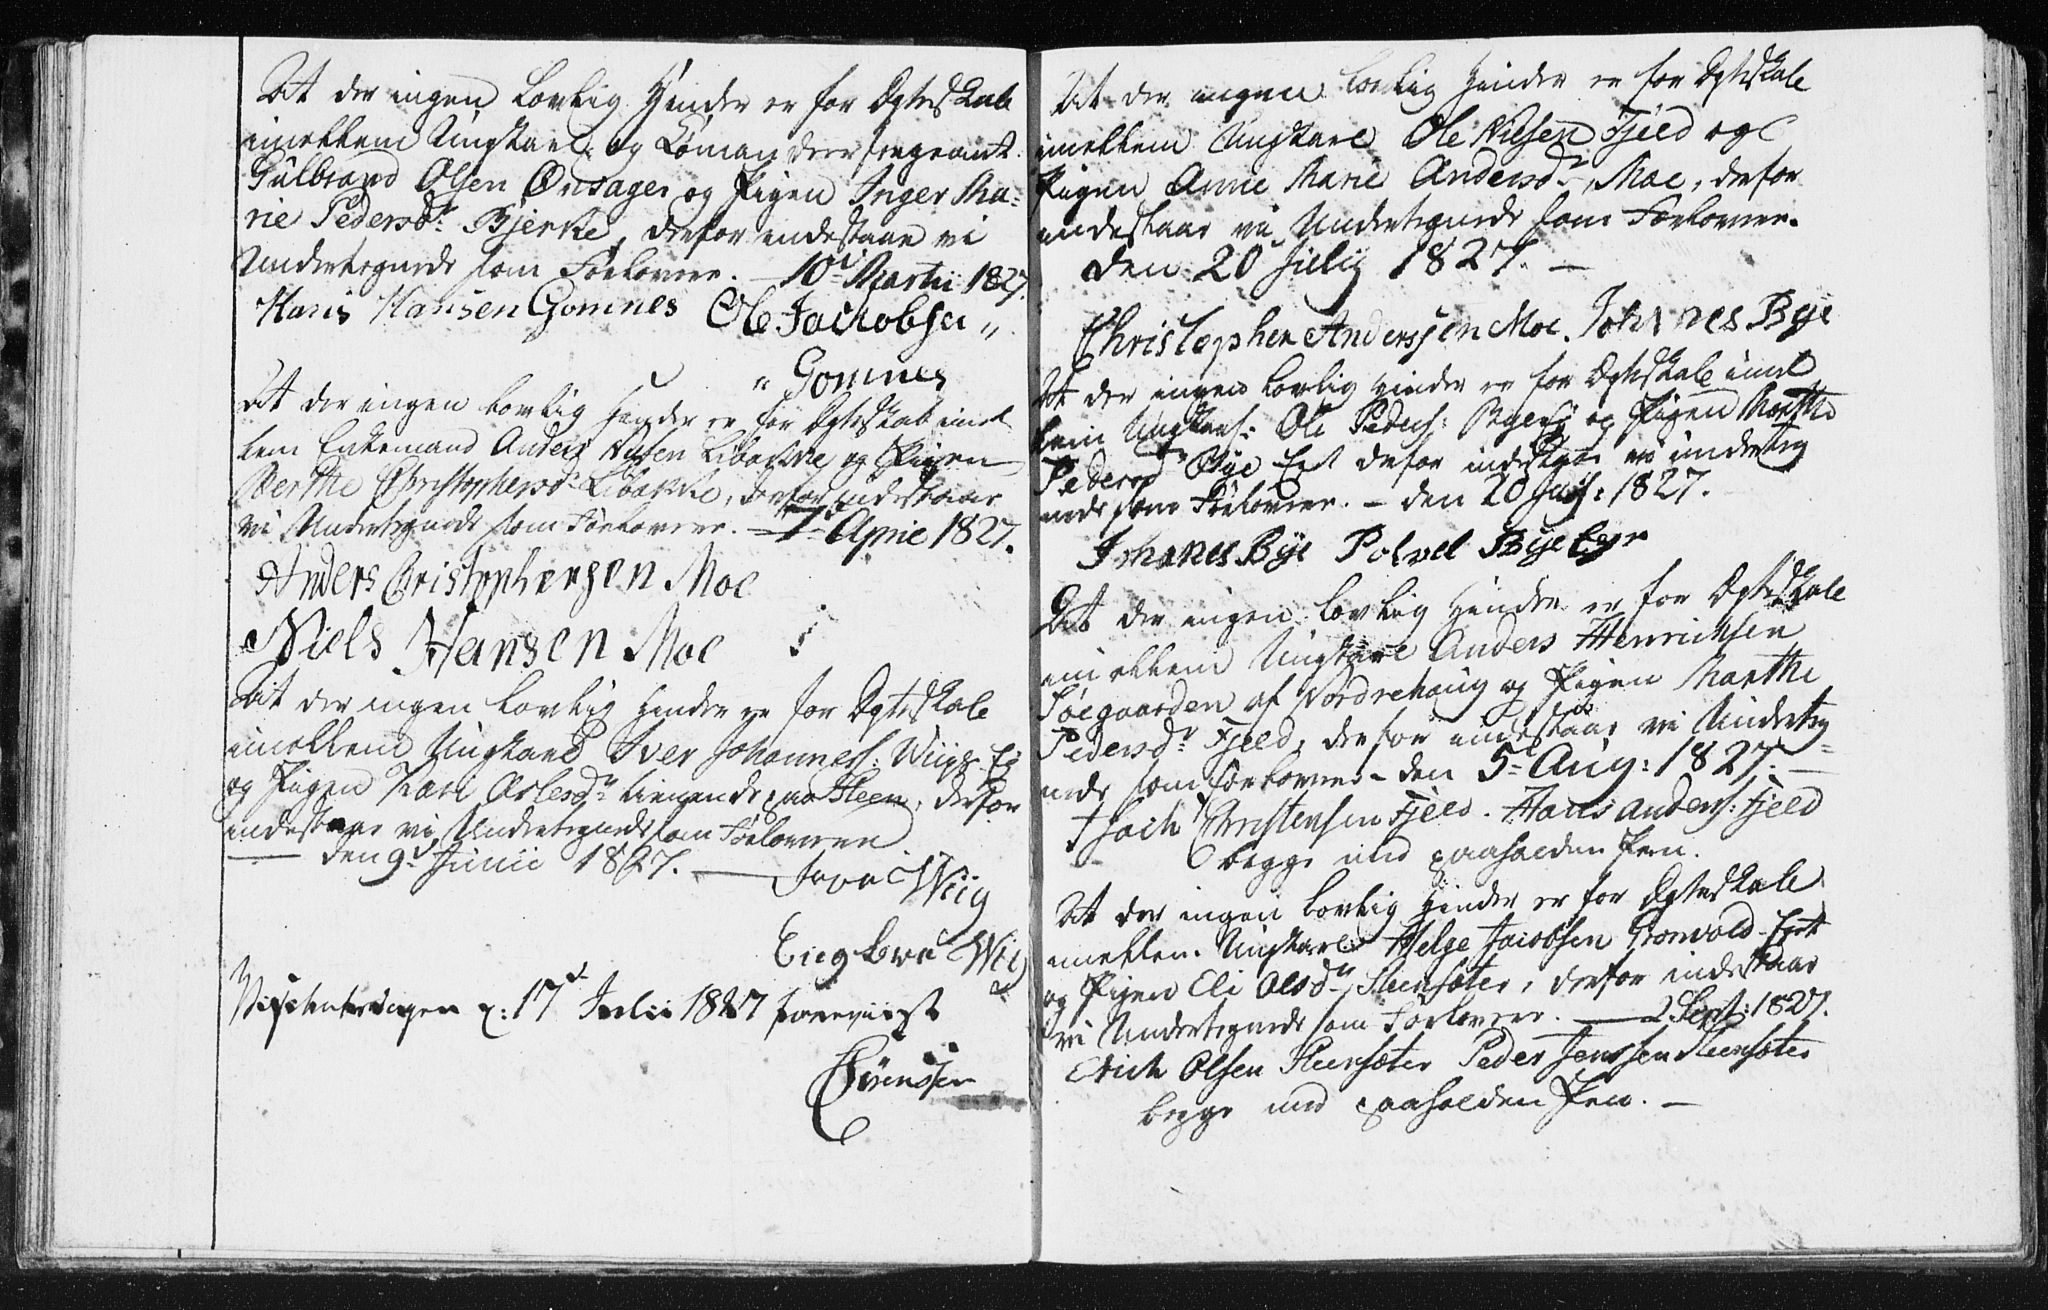 At der ingen lovlig Hinder er for Ægteskab
imellem Ungkarl og Commandeer sergeant
Gulbrand Olsen Onsager og Pigen Inger Ma-
rie Pedersdr Bjerke, derfor indestaar vi
Undertegnede som Forlovere. 10de Martii 1827.
Hans Hansen Gomnes Ole Jackobsen „
„ Gomnes
At der ingen lovlig Hinder er for Ægteskab imel
lem Enkemand Anders Nilsen Libakke og Pigen
Berthe Christophersdr Libakke, derfor indestaar
vi Undertegnede som Forlovere. — 7de April 1827.
Anders Cristophersen Moe
Niels Hansen Moe
At der ingen lovlig Hinder er for Ægteskab
imellem Ungkarl Iver Johanness: Wiigs Ei
og Pigen Kari Aslesdr tienende paa Steen, derfor
indestaar vi Undertegnede som Forlovere
— den 9de Junii 1827. — Wiig
Engebret Wiig
Visitatsdagen d: 17de Julii 1827 foreviist
Sörenssen
At der ingen lovlig Hinder er for Ægteskab
imellem Ungkarl Ole Nilsen Fjeld og
Pigen Anne Marie Andersdr Moe, derfor
indestaar vi Undertegnede som Forlovere.
den 20 July 1827. —
Christopher Anderssen Moe. Johannes Bye
At der ingen lovlig Hinder er for Ægteskab imel
lem Ungkarl: Ole Peders: og Pigen Marthe
Pedersdr Bye Eiet derfor indestaar vi underteg
nede som Forlovere. — den 20 July: 1827.
Johanes Bye Povel Bye Eye
At der ingen lovlig Hinder er for Ægteskab
imellem Ungkarl Anders Henrichsen
Söegaarden af Nordrehaug og Pigen Marthe
Pedersdr Fjeld, derfor indestaar vi Underteg
nede som Forlovere — den 5te Aug: 1827. —
Isach Christensen Fjeld. Hans Anders: Fjeld
begge med paaholden Pen.
At der ingen lovlig Hinder er for Ægteskab
imellem Ungkarl Helge Jacobsen Gronvold Eiet
og Pigen Eli Olsdr Steensæter, derfor indestaar
vi Undertegnede som Forlovere. — 2 Sept: 1827.
Erich Olsen Steensæter Peder Jenssen Steensæter
begge med paaholden Pen. —